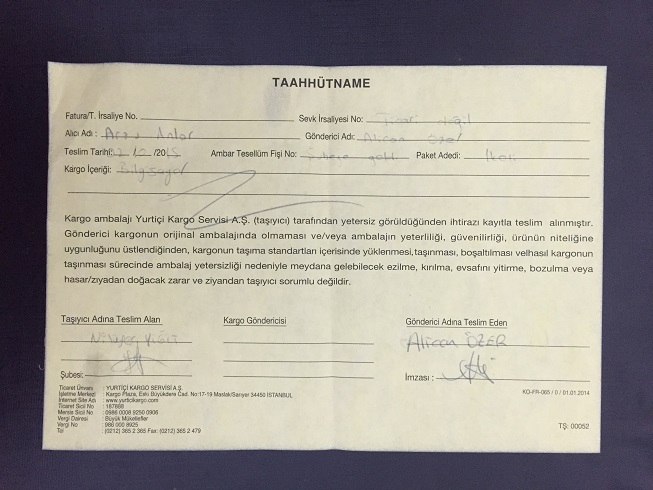 TAAHHÜTNAME
Fatura/T. İrsaliye No. Sevk İrsaliyesi No: Ticari değil
Alıcı Adı: Gönderici Adı: Alican Özer
Teslim Tarihi: /2015 Ambar Tesellüm Fişi No: Paket Adedi:
Kargo İçeriği: Bilgisayar
Kargo ambalajı Yurtiçi Kargo Servisi A.Ş. (taşıyıcı) tarafından yetersiz görüldüğünden ihtirazi kayıtla teslim alınmıştır.
Gönderici kargonun orijinal ambalajında olmaması ve/veya ambalajın yeterliliği, güvenilirliği, ürünün niteliğine
uygunluğunu üstlendiğinden, kargonun taşıma standartları içerisinde yüklenmesi,taşınması, boşaltılması velhasıl kargonun
taşınması sürecinde ambalaj yetersizliği nedeniyle meydana gelebilecek ezilme, kırılma, evsafını yitirme, bozulma veya
hasar/ziya/ziyan doğacak zarar ve ziyandan taşıyıcı sorumlu değildir.
Taşıyıcı Adına Teslim Alan Kargo Göndericisi Gönderici Adına Teslim Eden
ALİCAN ÖZER
Şubesi: İmzası :
Ticaret Ünvanı : YURTİÇİ KARGO SERVİSİ A.Ş.
İşletme Merkezi : Kargo Plaza, Eski Büyükdere Cad. No: 17-19 Maslak/Sarıyer 34450 İSTANBUL
İnternet Site Adı : www.yurticikargo.com
Ticaret Sicil No
Mersis Sicil No
Vergi Dairesi : Büyük Mükellefler
Vergi No
Tel : (0212) 365 2 365 Fax: (0212) 365 2 479
KG-FR-065 / 0 / 01.01.2014
TŞ. 00052